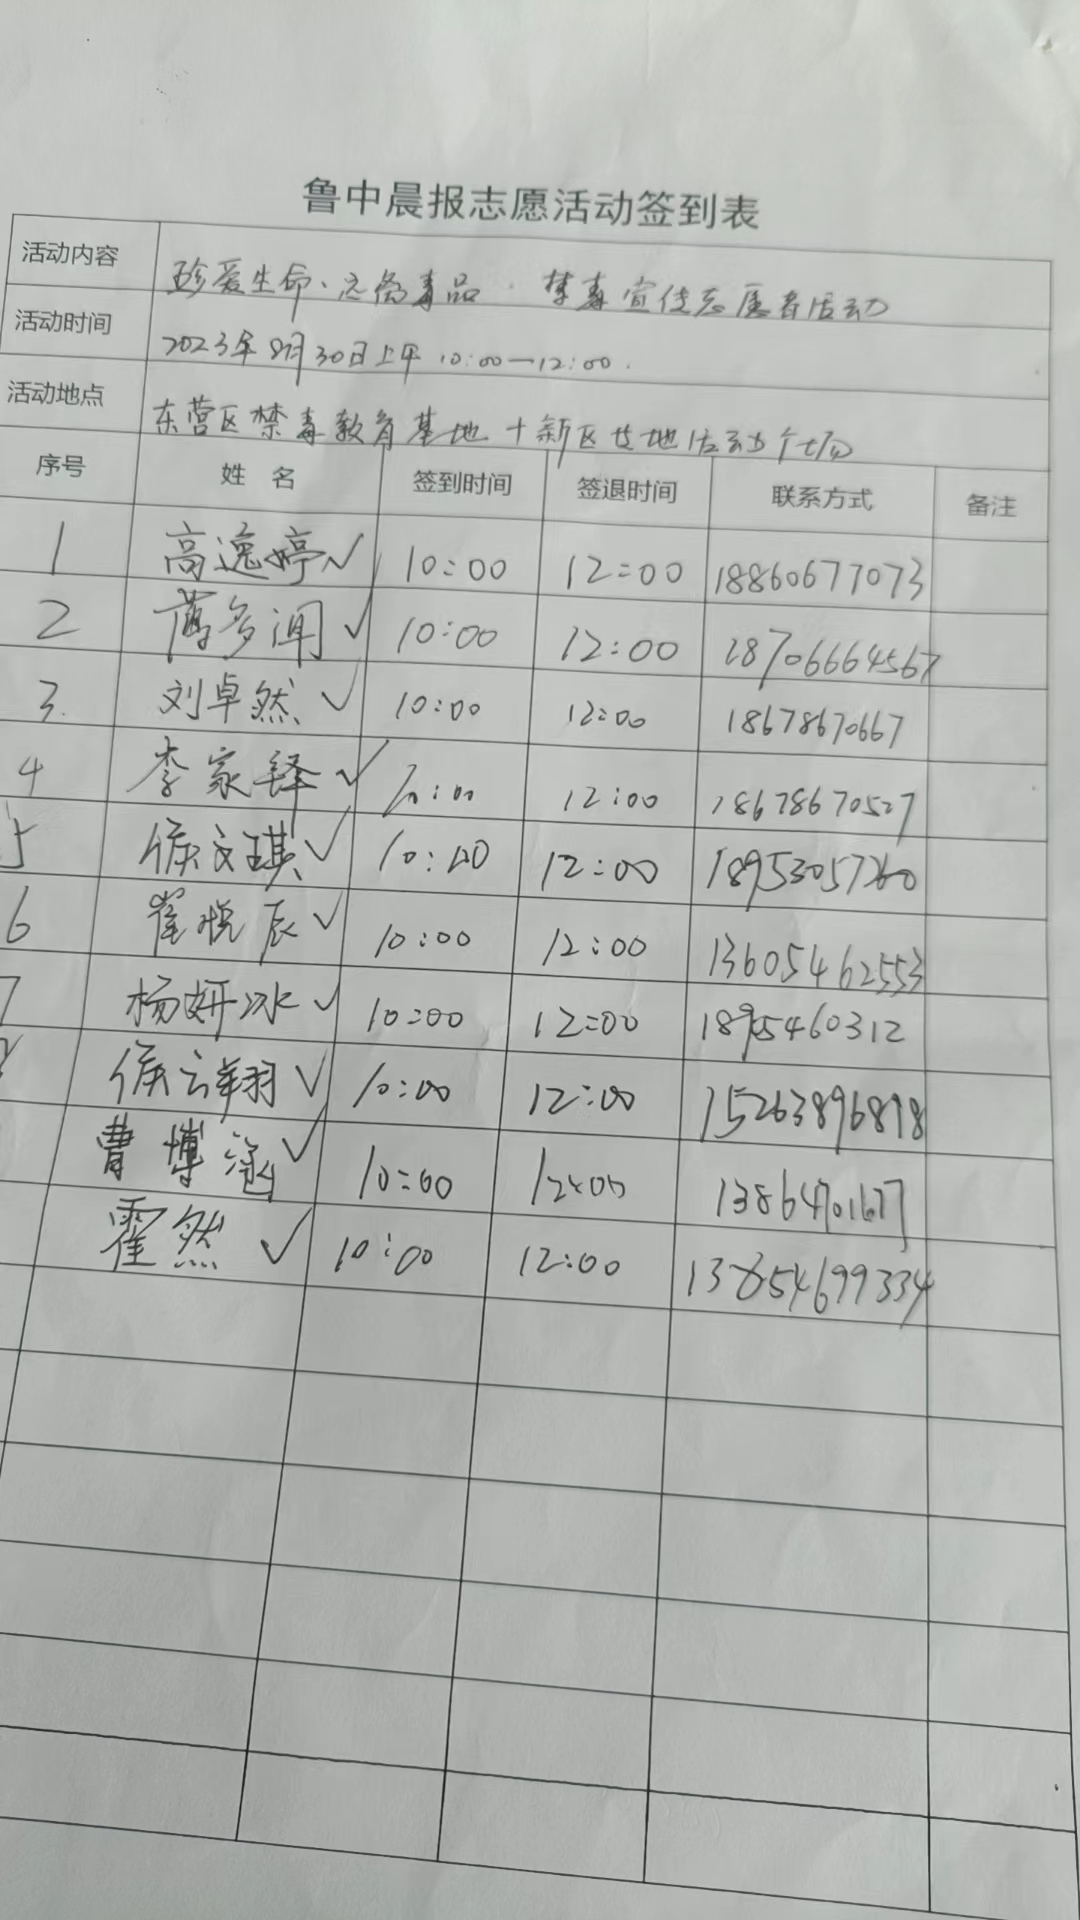 鲁中晨报志愿活动签到表
活动内容 珍爱生命、远离毒品 · 禁毒宣传志愿者活动
活动时间 2023年8月30日上午 10:00—12:00.
活动地点 东营区禁毒教育基地 新区 地活动
序号 姓 名 签到时间 签退时间 联系方式 备注
1 高逸婷✓ 10:00 12:00 18860677073
2 薄多闻✓ 10:00 12:00 18706664567
3. 刘卓然✓ 10:00 12:00 18678670667
4 李家铎✓ 10:00 12:00 18678670527
5 侯文琪✓ 10:00 12:00
6 崔悦辰✓ 10:00 12:00 13605462553
7 杨妍冰✓ 10:00 12:00
侯云翔✓ 10:00 12:00 15263896898
曹博涵✓ 10:00 12:00 13864701677
霍然✓ 10:00 12:00 13854699334